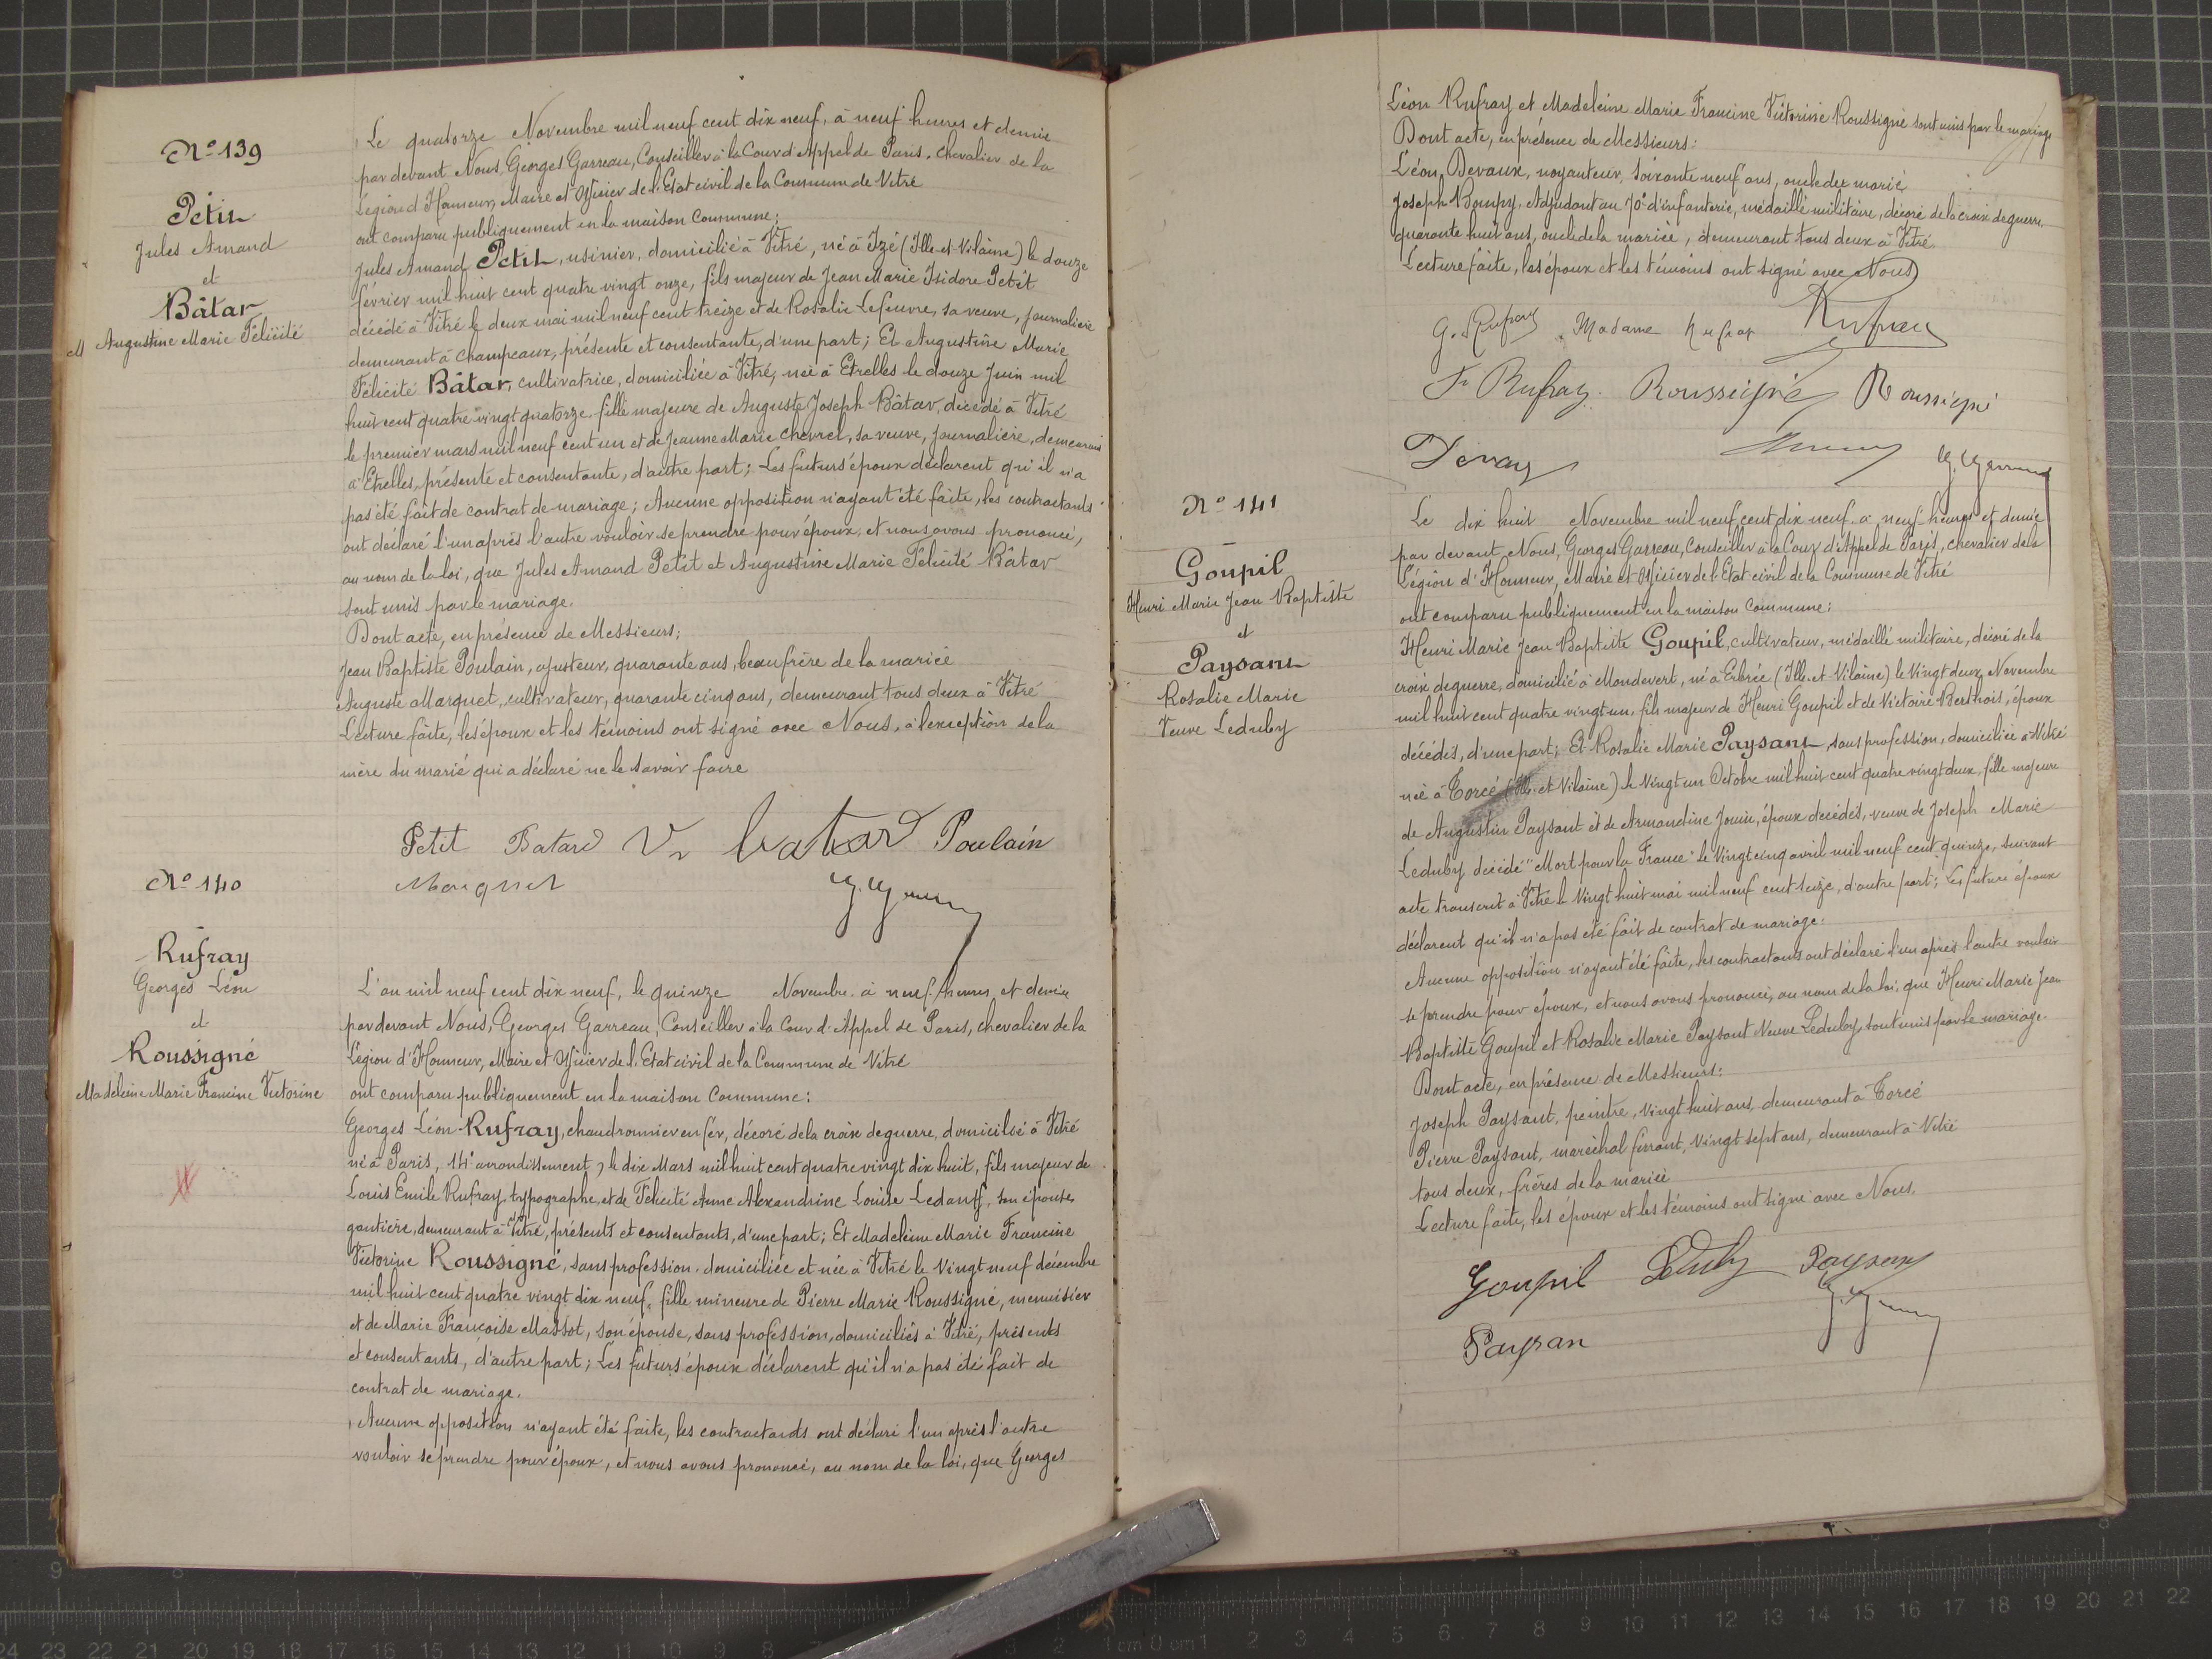 N° 139
Petit
Jules Amand
et
Bâtar
Augustine Marie Félicité
Le quatorze Novembre mil neuf cent dix neuf, à neuf heures et demie
par devant Nous, Georges Garreau, Conseiller à la Cour d'Appel de Paris, chevalier de la
Légion d'Honneur, Maire et Officier de l'Etat civil de la Commune de Vitré
ont comparu publiquement en la maison commune:
Jules Amand Petit, usinier, domicilié à Vitré, né à Izé (Ille-et-Vilaine) le douze
février mil huit cent quatre vingt onze, fils majeur de Jean Marie Isidore Petit
décédé à Vitré le deux mai mil neuf cent treize et de Rosalie Lefeuvre, sa veuve, journalière
demeurant à Champeaux, présente et consentante, d'une part; Et Augustine Marie
Félicité Bâtar, cultivatrice, domiciliée à Vitré, née à Etrelles le douze Juin mil
huit cent quatre vingt quatorze, fille majeure de Auguste Joseph Bâtar, décédé à Vitré
le premier mars mil neuf cent un et de Jeanne Marie Chevrel, sa veuve, journalière, demeurant
à Etrelles, présente et consentante, d'autre part; Les futurs époux déclarent qu'il n'a
pas été fait de contrat de mariage; Aucune opposition n'ayant été faite, les contractants
ont déclaré l'un après l'autre vouloir se prendre pour époux, et nous avons prononcé,
au nom de la loi, que Jules Amand Petit et Augustine Marie Félicité Bâtar
sont unis par le mariage.
Dont acte, en présence de Messieurs:
Jean Baptiste Poulain, ajusteur, quarante ans, beau frère de la mariée
Auguste Marquet, cultivateur, quarante cinq ans, demeurant tous deux à Vitré
Lecture faite, les époux et les témoins ont signé avec Nous, à l'exception de la
mère du marié qui a déclaré ne le savoir faire
Petit Batard Ve batard Poulain
N° 140
Rufray
Georges Léon
et
Roussigné
Madeleine Marie Francine Victorine
L'an mil neuf cent dix neuf, le quinze Novembre à neuf heures et demie
par devant Nous, Georges Garreau, Conseiller à la Cour d'Appel de Paris, chevalier de la
Légion d'Honneur, Maire et Officier de l'Etat civil de la Commune de Vitré
ont comparu publiquement en la maison commune:
Georges Léon Rufray, chaudronnier en fer, décoré de la croix de guerre, domicilié à Vitré
né à Paris, 14e arrondissement, le dix Mars mil huit cent quatre vingt dix huit, fils majeur de
Louis Emile Rufray, typographe, et de Félicité Anne Alexandrine Louise Ledanff, son épouse
gantière, demeurant à Vitré, présents et consentants, d'une part; Et Madeleine Marie Francine
Victorine Roussigné, sans profession, domiciliée et née à Vitré le Vingt neuf décembre
mil huit cent quatre vingt dix neuf, fille mineure de Pierre Marie Roussigné, menuisier
et de Marie Françoise Massot, son épouse, sans profession, domiciliés à Vitré, présents
et consentants, d'autre part; Les futurs époux déclarent qu'il n'a pas été fait de
contrat de mariage.
Aucune opposition n'ayant été faite, les contractants ont déclaré l'un après l'autre
vouloir se prendre pour époux, et nous avons prononcé, au nom de la loi, que Georges
Léon Rufray et Madeleine Marie Francine Victorine Roussigné sont unis par le mariage
Dont acte, en présence de Messieurs:
Léon Devaux, noyauteur, soixante neuf ans, oncle du marié
Joseph Boupy, Adjudant au 70e d'infanterie, médaillé militaire, décoré de la croix de guerre
quarante huit ans, oncle de la mariée, demeurant tous deux à Vitré.
Lecture faite, les époux et les témoins ont signé avec Nous
G. Rufray Madame Rufray Rufray
Rufray. Roussigné Roussigné
N° 141
Goupil
Henri Marie Jean Baptiste
et
Paysant
Rosalie Marie
Veuve Leduby
Le dix huit Novembre mil neuf cent dix neuf à neuf heures et demie
par devant Nous, Georges Garreau, Conseiller à la Cour d'Appel de Paris, chevalier de la
Légion d'Honneur, Maire et Officier de l'Etat civil de la Commune de Vitré
ont comparu publiquement en la maison commune:
Henri Marie Jean Baptiste Goupil, cultivateur, médaillé militaire, décoré de la
croix de guerre, domicilié à Mondevert, né à Erbrée (Ille-et-Vilaine) le Vingt deux Novembre
mil huit cent quatre vingt un, fils majeur de Henri Goupil et de Victoire Berthois, époux
décédés, d'une part; Et Rosalie Marie Paysant, sans profession, domiciliée à Vitré
née à Torcé (Ille-et-Vilaine) le Vingt un Octobre mil huit cent quatre vingt deux, fille majeure
de Augustin Paysant et de Armandine Jouin, époux décédés, veuve de Joseph Marie
Leduby, décédé "Mort pour la France" le Vingt cinq avril mil neuf cent quinze, suivant
acte transcrit à Vitré le Vingt huit mai mil neuf cent seize, d'autre part; Les futurs époux
déclarent qu'il n'a pas été fait de contrat de mariage.
Aucune opposition n'ayant été faite, les contractants ont déclaré l'un après l'autre vouloir
se prendre pour époux, et nous avons prononcé, au nom de la loi, que Henri Marie Jean
Baptiste Goupil et Rosalie Marie Paysant Veuve Leduby, sont unis par le mariage.
Dont acte, en présence de Messieurs:
Joseph Paysant, peintre, Vingt huit ans, demeurant à Torcé
Pierre Paysant, maréchal ferrant, Vingt sept ans, demeurant à Vitré
tous deux, frères de la mariée
Lecture faite, les époux et les témoins ont signé avec Nous.
Goupil Leduby Paysant
Paysan